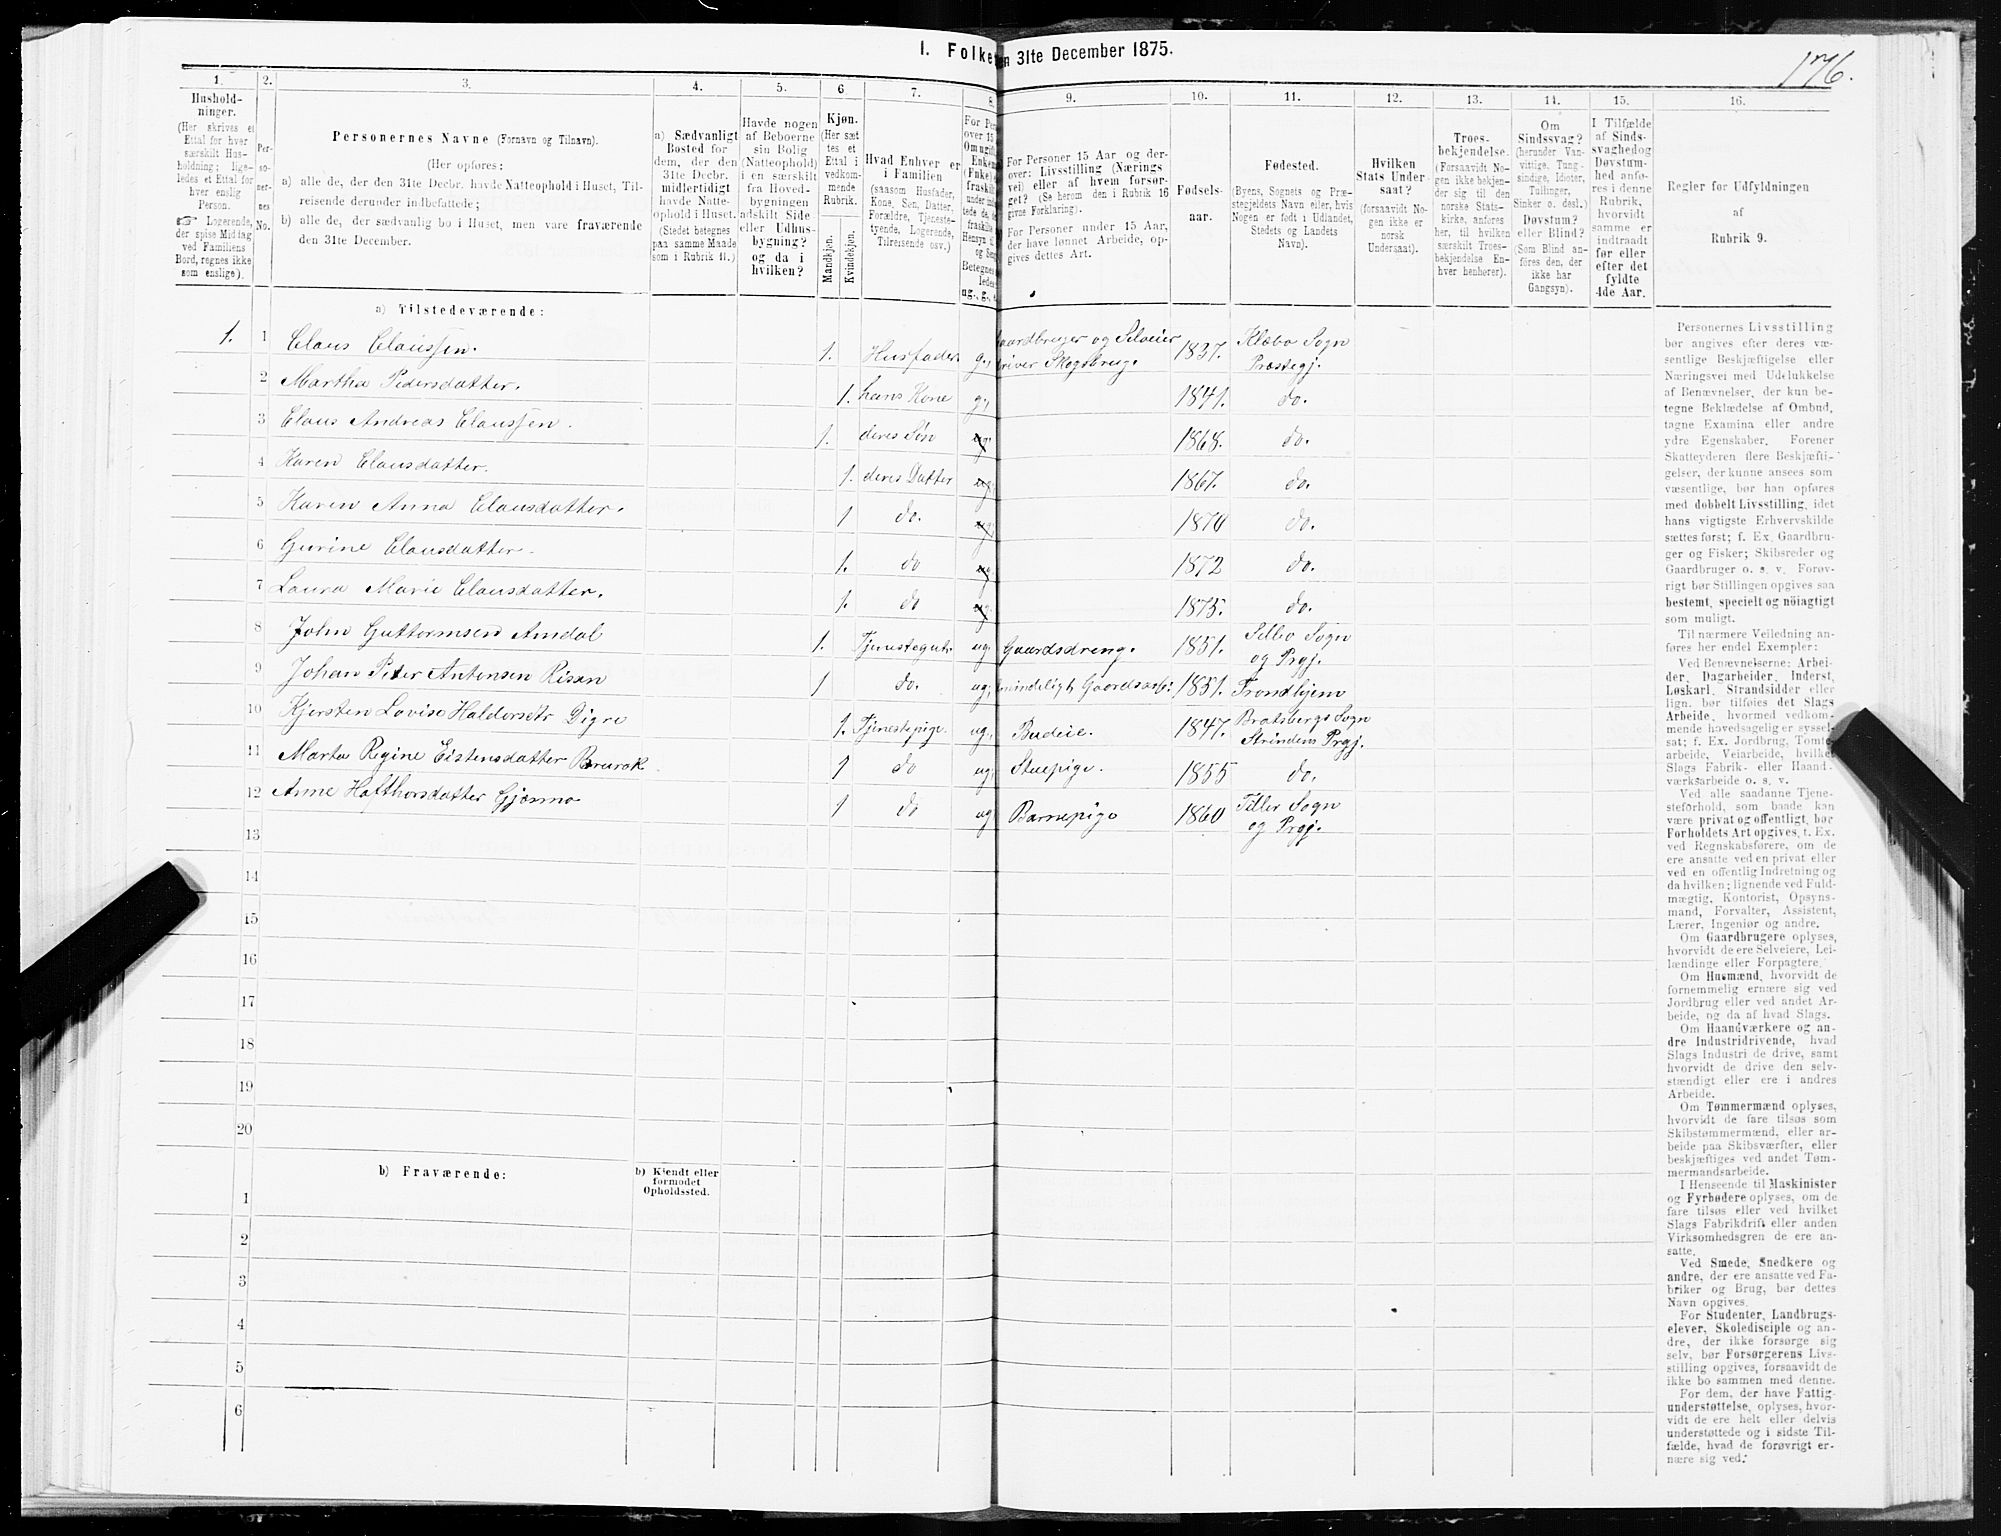 I. Folke en 31te December 1875.
176.
1. 2. 3. 4. 5. 6 7. 8. 9. 10. 11. 12. 13. 14. 15. 16.
Hushold-
ninger.
(Her skrives et
Ettal for hver
særskilt Hus-
holdning; lige-
ledes et Ettal for
hver enslig
Person.
☞ Logerende,
der spise Middag
ved Familiens
Bord, regnes ikke
som enslige).
Per-
so-
ner-
nes
No.
Personernes Navne (Fornavn og Tilnavn).
(Her opføres:
a) alle de, der den 31te Decbr. havde Natteophold i Huset, Til-
reisende derunder indbefattede;
b) alle de, der sædvanlig bo i Huset, men vare fraværende
den 31te December.
a) Sædvanligt
Bosted for
dem, der den
31te Decbr.
midlertidigt
havde Natte-
ophold i Huset.
(Stedet betegnes
paa samme Maade
som i Rubrik 11.)
Havde nogen
af Beboerne
sin Bolig
(Natteophold)
i en særskilt
fra Hoved-
bygningen
adskilt Side
eller Udhus-
bygning?
og da i
hvilken?
Kjøn.
(Her sæt
tes et
Ettal i
vedkom-
mende
Rubrik.
Mandkjøn.
Kvindekjøn.
Hvad Enhver er
i Familien
(saasom Husfader,
Kone, Søn, Datter,
Forældre, Tjeneste-
tyende, Logerende,
Tilreisende osv.)
For Personer 15 Aar og der-
over: Livsstilling (Nærings
vei) eller af hvem forsør-
get? (Se herom den i Rubrik 16
givne Forklaring).
For Personer under 15 Aar,
der have lønnet Arbeide, op-
gives dettes Art.
Fødsels-
aar.
Fødested.
(Byens, Sognets og Præ-
stegjeldets Navn eller, hvis
Nogen er født i Udlandet,
Stedets og Landets
Navn).
Hvilken
Stats Under
saat?
(forsaavidt No-
gen ikke er
norsk
Undersaat).
Troes-
bekjendelse.
(Forsaavidt No-
gen ikke bekjen-
der sig til den
norske Stats-
kirke, anføres
her, til hvilken
særskilt Troes-
bekjendelse En-
hver henhører).
Om
Sindssvag?
(herunder Van-
vittige, Tung-
sindige, Idioter,
Tullinger,
Sinker o. desl.)
Døvstum?
eller Blind?
(Som Blind an-
føres den, der
ikke har
Gangsyn).
I Tilfælde
af Sinds-
svaghed og
Døvstum-
hed anfø-
res i denne
Rubrik,
hvorvidt
samme er
indtraadt
før eller
efter det
fyldte
4de Aar.
Regler for Udfyldningen
af
Rubrik 9.
a) Tilstedeværende:
1. 1 Claus Claussen. 1. Husfader g., Gaardbruger og Selveier 1837. Klæbo Sogn
driver Skogsbrug. Præstegj.
2 Martha Pedersdatter. 1. hans Kone g., 1841. do.
3 Claus Andreas Claussen. 1. deres Søn ug. 1868. do.
4 Karen Clausdatter. 1. deres Datter ug. 1867. do.
5 Karen Anna Clausdatter. 1 do. ug. 1870 do.
6 Gurine Clausdatter. 1. do ug 1872 do.
7 Laura Marie Clausdatter. 1. do ug. 1875. do.
8 John Guttormsen Amdal 1. Tjenestegut ug. Gaardsdreng. 1851. Selbo Sogn
og Prgj.
9 Johan Peter Antonsen Risan 1 do. ug. Gaardsarb: 1851. Trondhjem
10 Kjersten Lovise Haldorsdtr Digre 1. Tjenestepige. ug. Budeie. 1847. Bratsbergs Sogn
Strindens Prgj.
11 Marta Regine Eistensdatter Brurak 1 do ug Stuepige. 1855 do.
12 Anne Hafthorsdatter Gjønno 1 do ug Barnepige 1860 Tiller Sogn
og Prgj.
13
14
15
16
17
18
19
20
b) Fraværende:
b) Kjendt eller
formodet
Opholdssted.
1
2
3
4
5
6
Personernes Livsstilling
bør angives efter deres væ-
sentlige Beskjæftigelse eller
Næringsvei med Udelukkelse
af Benævnelser, der kun be-
tegne Beklædelse af Ombud,
tagne Examina eller andre
ydre Egenskaber. Forener
Skatteyderen flere Beskjæfti-
gelser, der kunne ansees som
væsentlige, bør han opføres
med dobbelt Livsstilling, idet
hans vigtigste Erhvervskilde
sættes først; f. Ex. Gaardbru-
ger og Fisker; Skibsreder og
Gaardbruger o. s. v. Forøv-
rigt bør Stillingen opgives saa
bestemt, specielt og nöiagtigt
som muligt.
Til nærmere Veiledning an-
føres her endel Exempler:
Ved Benævneiserne: Arbei-
der, Dagarbeider, Inderst,
Løskarl, Strandsidder eller
lign. bør tilføies det Slags
Arbeide, hvormed vedkom-
mende hovedsagelig er syssel-
sat; f. Ex. Jordbrug, Tomte-
arbeide, Veiarbeide, hvilket
Slags Fabrik- eller Haand-
værksarbeide o. s. v.
Ved alle saadanne Tjene-
steforhold, som baade kan
være privat og offentligt, bør
Forholdets Art opgives, t. Ex.
ved Regnskabsførere, om de
ere ansatte ved en privat eller
ved en offentlig Indretning og
da hvilken; lignende ved Fuld-
mægtig, Kontorist, Opsyns-
mand, Forvalter, Assistent,
Lærer, Ingeniør og andre.
Om Gaardbrugere oplyses,
hvorvidt de ere Selveiere, Lei-
lændinge eller Forpagtere.
Om Husmænd, hvorvidt de
fornemmelig ernære sig ved
Jordbrug eller ved andet Ar-
beide, og da af hvad Slags.
Om Haandværkere og an-
dre Industridrivende, hvad
Slags Industri de drive, samt
hvorvidt de drive den selv-
stændigt eller ere i andres
Arbeide.
Om Tømmermænd oplyses,
hvorvidt de fare tilsøs som
Skibstømmermænd, eller ar-
beide paa Skibsværfter, eller
beskjæftiges ved andet Tøm-
mermandsarbeide.
I Henseende til Maskinister
og Fyrbødere oplyses, om de
fare tilsøs eller ved hvilket
Slags Fabrikdrift eller anden
Virksomhedsgren de ere an-
satte.
Ved Smede, Snedkere og
andre, der ere ansatte ved Fa-
briker og Brug, bør dettes
Navn opgives.
For Studenter, Landbrugs-
elever, Skoledisciple og an-
dre, der ikke forsørge sig
selv, bør Forsørgerens Livs-
stilling opgives, forsaavidt de
ikke bo sammen med denne.
For dem, der have Fattig-
understøttelse, oplyses, hvor-
vidt de ere helt eller delvis
understøttede og i sidste Til-
fælde, hvad de forøvrigt er-
nære sig ved.